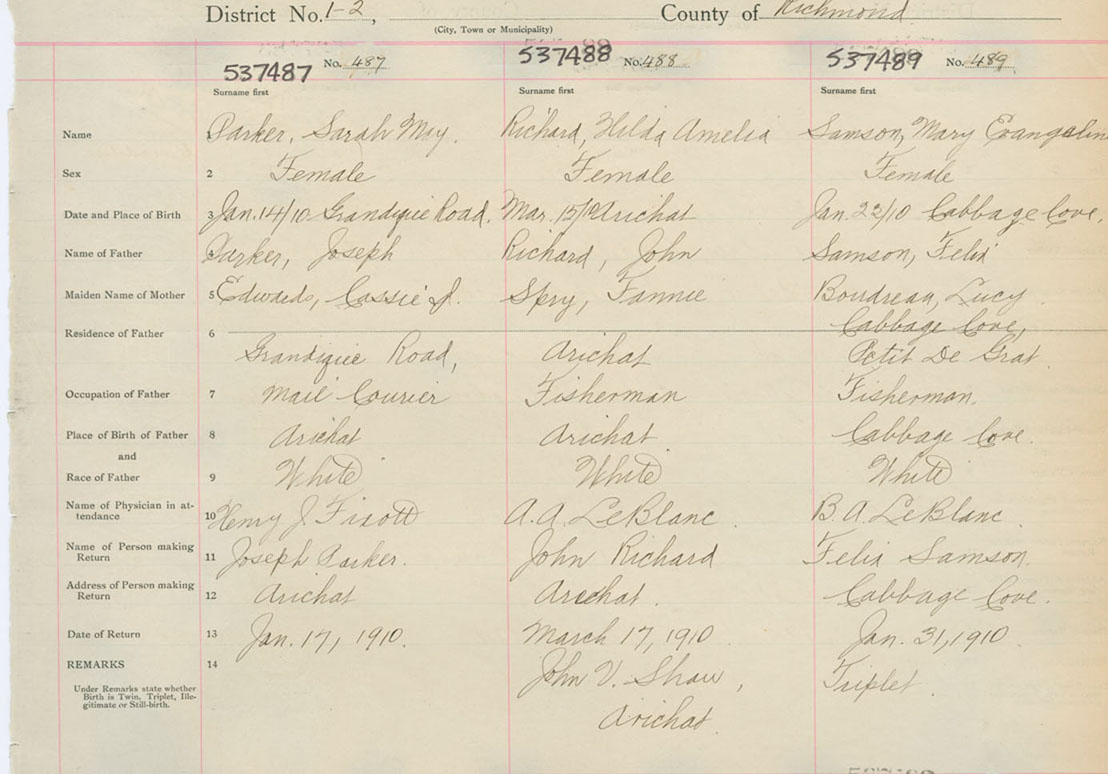 District No. 1-2, County of Richmond
(City, Town or Municipality)
537487 No. 487 537488 No. 488 537489 No. 489
Surname first Surname first Surname first
Name 1 Parker, Sarah May. Richard, Hilda Amelia Samson, Mary Evangelin
Sex 2 Female Female Female
Date and Place of Birth 3 Jan. 14/10 Grandique Road. Mar. 15/10 Arichat Jan. 22/10 Cabbage Cove.
Name of Father 4 Parker, Joseph Richard, John Samson, Felix
Maiden Name of Mother 5 Edwards, Cassie J. Spry, Fannie Boudreau, Lucy
Residence of Father 6 Cabbage Cove,
Grandique Road, Arichat Petit De Grat
Occupation of Father 7 Mail Courier Fisherman Fisherman.
Place of Birth of Father 8 Arichat Arichat Cabbage Cove.
and
Race of Father 9 White White White
Name of Physician in at-
tendance 10 Henry J. A.A. LeBlanc. B.A. LeBlanc.
Name of Person making
Return 11 Joseph Parker. John Richard Felix Samson.
Address of Person making
Return 12 Arichat Arichat. Cabbage Cove.
Date of Return 13 Jan. 17, 1910. March 17, 1910 Jan. 31, 1910
REMARKS 14 John V. Shaw, Triplet.
Under Remarks state whether
Birth is Twin, Triplet, Ille-
gitimate or Still-birth.
Arichat.